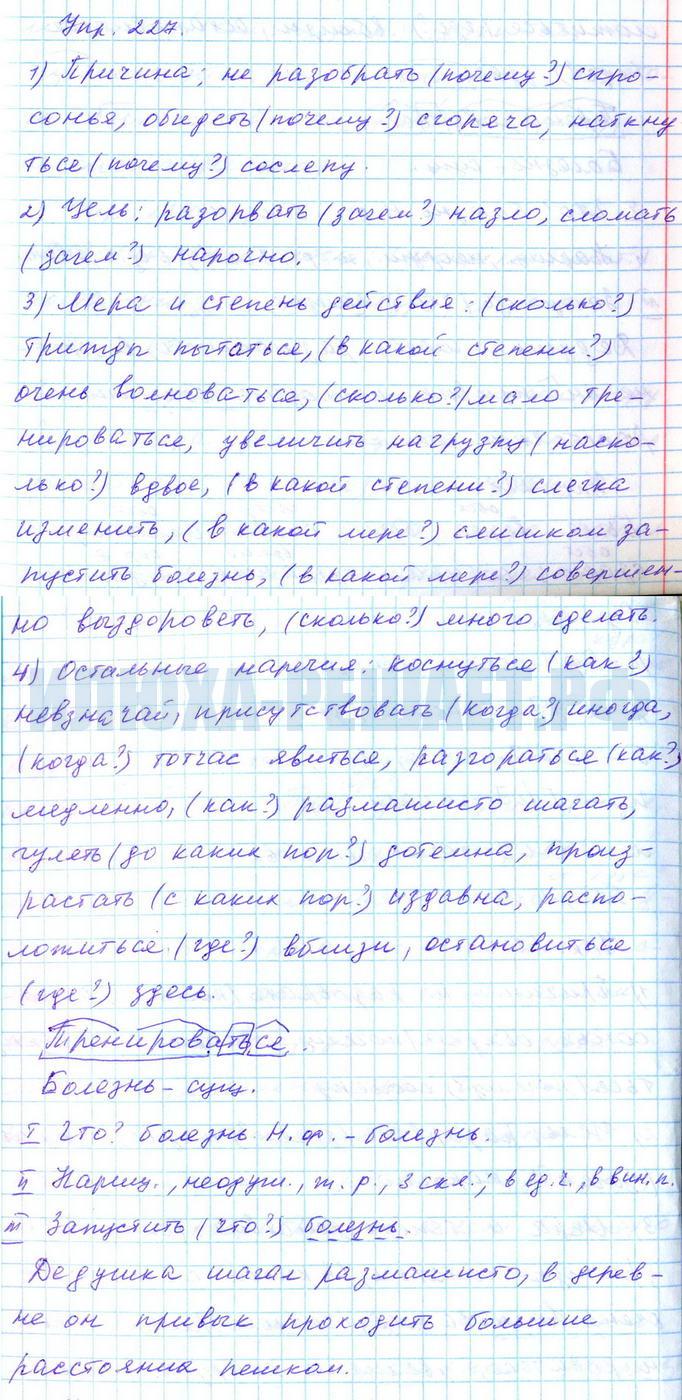 Упр. 227.
1) Причина: не разобрать (почему?) спро-
сонья, обидеть (почему?) сгоряча, наткну
ться (почему?) сослепу.
2) Цель: разорвать (зачем?) назло, сломать
(зачем?) нарочно.
3) Мера и степень действия: (сколько?)
трижды пытаться, (в какой степени?)
очень волноваться, (сколько?) мало тре-
нироваться, увеличить нагрузку (наско-
лько?) вдвое, (в какой степени?) слегка
изменить, (в какой мере?) слишком за-
пустить болезнь, (в какой мере?) совершен-
но выздороветь, (сколько?) много сделать.
4) Остальные наречия: коснуться (как?)
невзначай, присутствовать (когда?) иногда,
(когда?) тотчас явиться, разгораться (как?)
медленно, (как?) размашисто шагать,
гулять (до каких пор?) дотемна, произ-
растать (с каких пор?) издавна, распо-
ложиться (где?) вблизи, остановиться
(где?) здесь.
Тренироваться.
Болезнь – сущ.
I Что? болезнь. Н. ф. – болезнь.
II Нариц., неодуш., ж. р., 3 скл.; в ед. ч., в вин. п.
III Запустить (что?) болезнь.
Дедушка шагал размашисто, в дерев-
не он привык проходить большие
расстояния пешком.